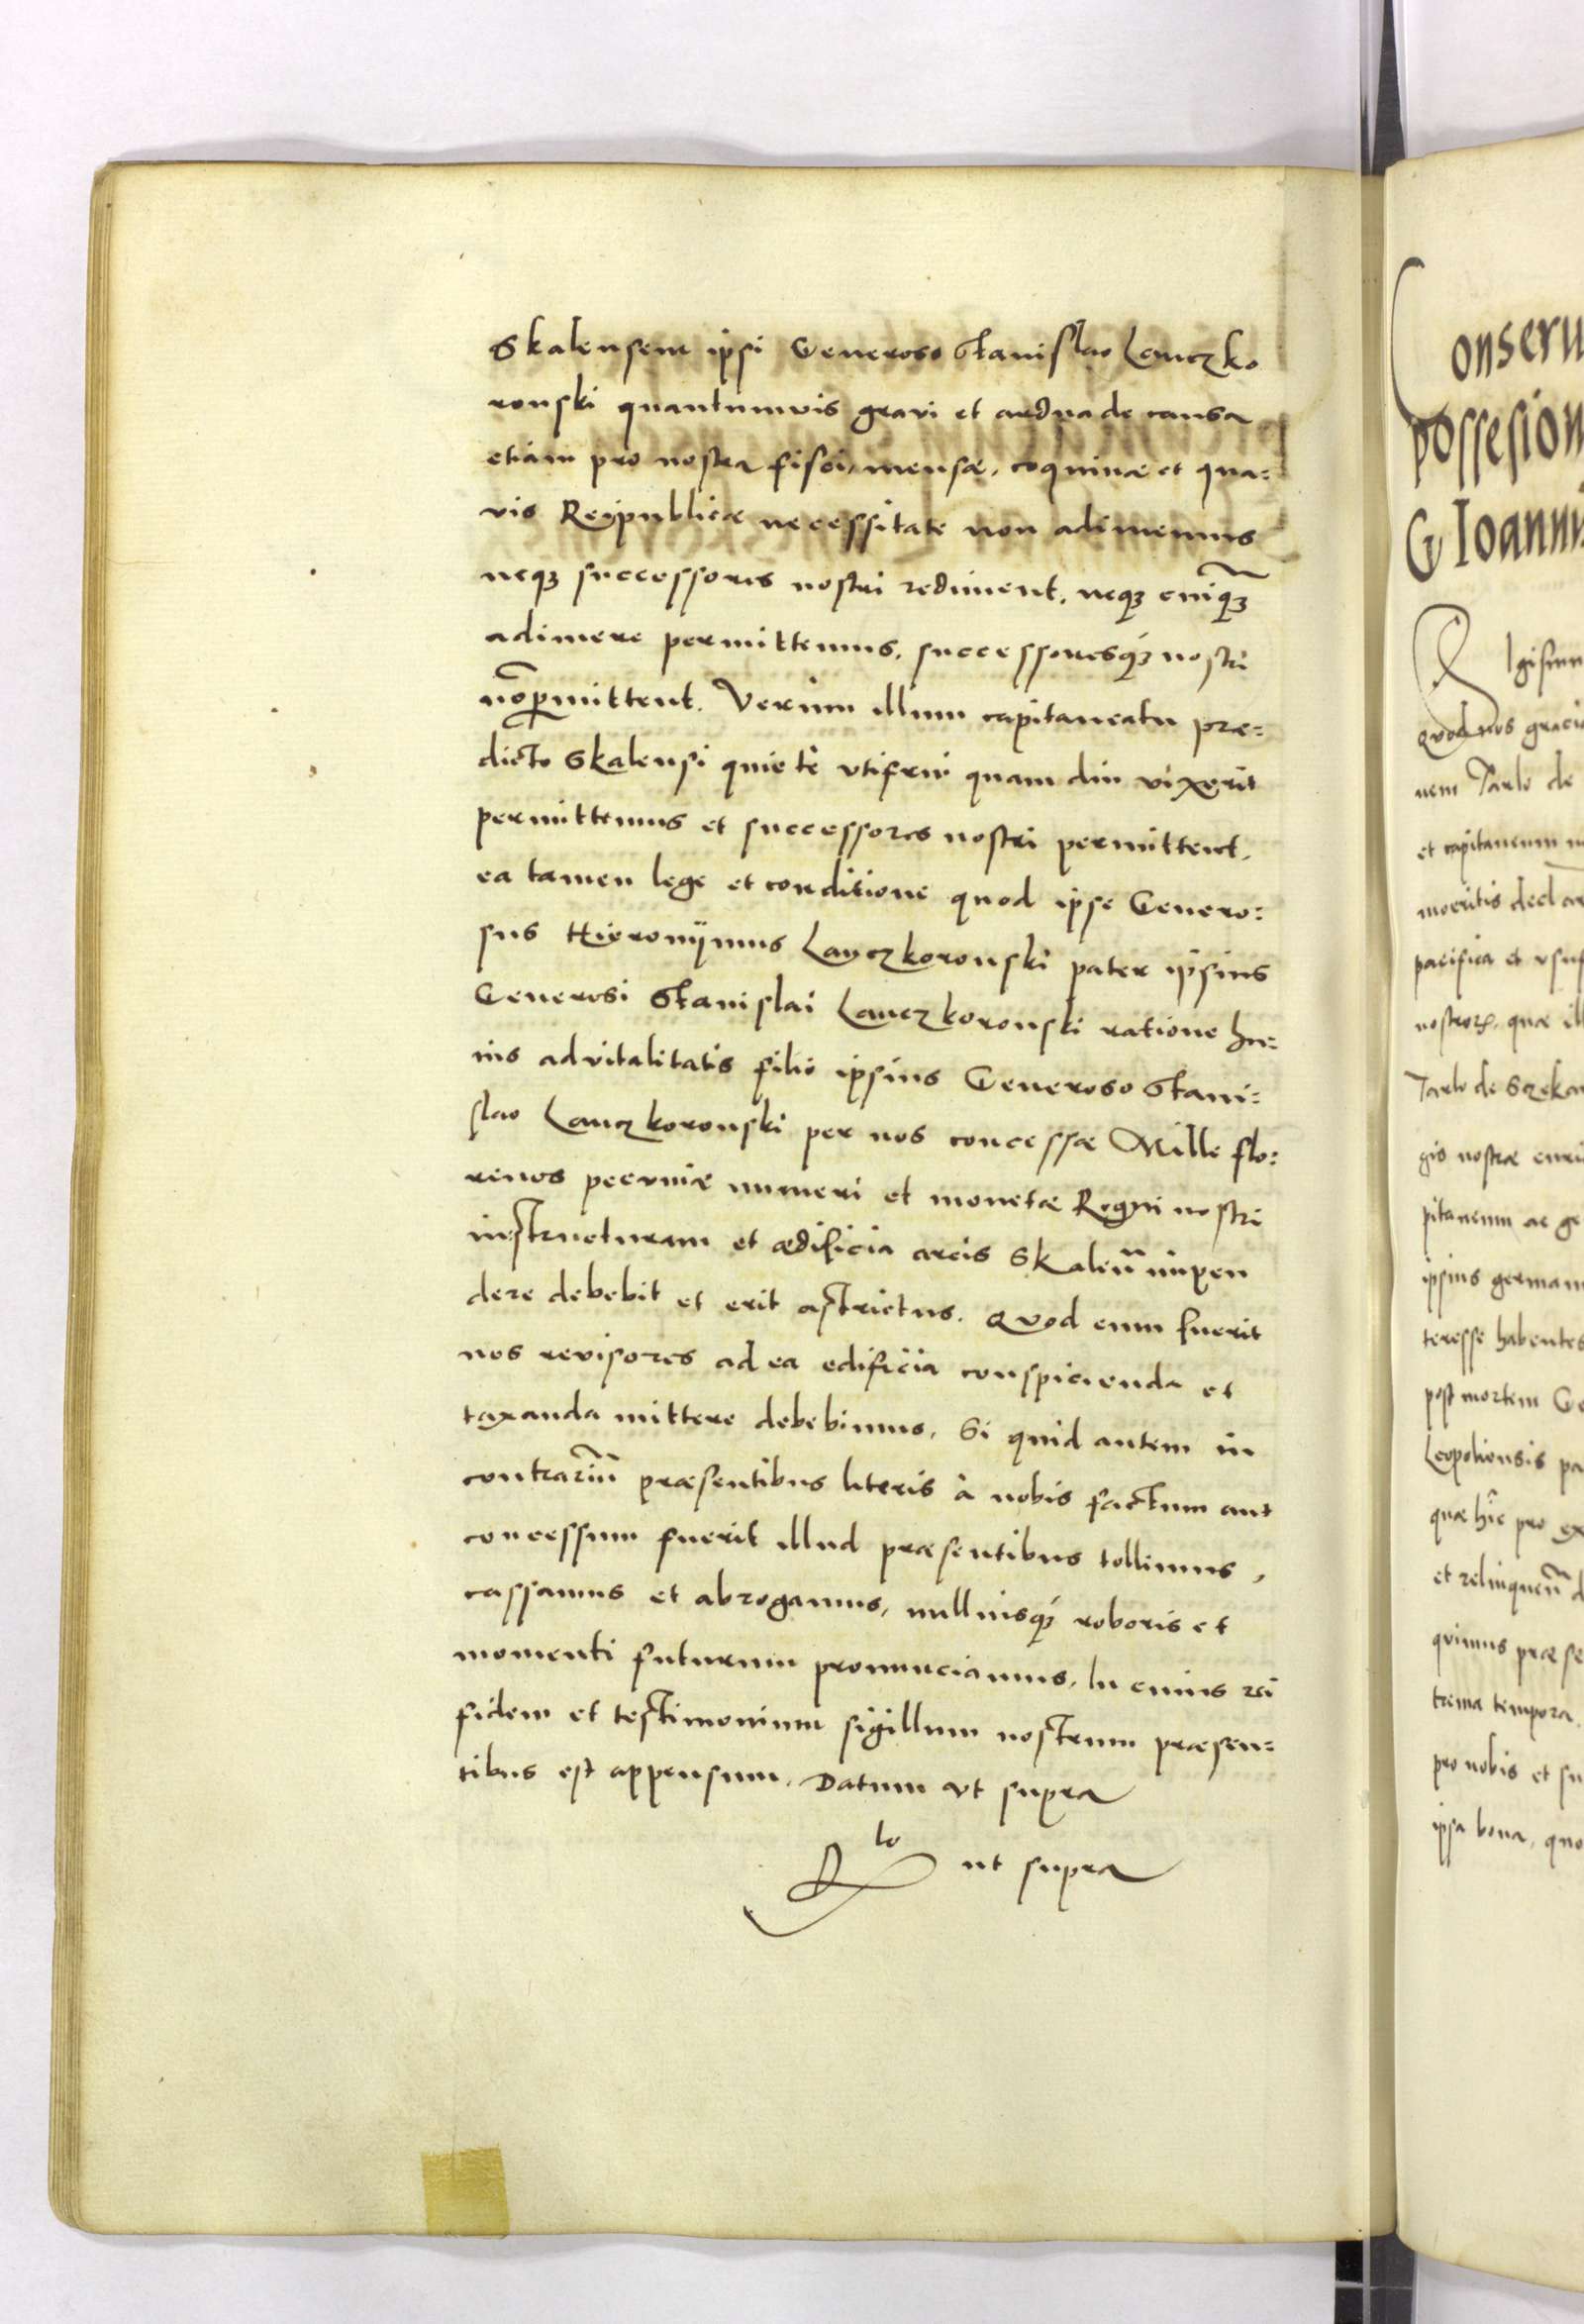 Skalensem ipsi Generoso Stanislao Lanczko
ronski quantumvis gravi et ardua de causa
etiam pro nostra fisci, mensæ, coquinæ et qua=
vis Reipublicæ necessitate non adimemus
neqꝫ successores nostri rediment, neqꝫ cuiqꝫ̃
adimere permittemus, successoresqꝫ nostri
nõ ꝑmittent. Verum illum capitaneatu præ=
dicto Skalensi quietè utifrui quam diu vixerit
permittemus et successores nostri permittent,
ea tamen lege et conditione quod ipse Genero=
sus Hieronÿmus Lanczkoronski pater ipsius
Generosi Stanislai Lanczkoronski ratione hu=
ius advitalitatis filio ipsius Generoso Stani=
slao Lanczkoronski per nos concessæ Mille flo=
renos pecuniæ numeri et monetæ Regni nostri
in structuram et ædificia arcis Skaleñ impen
dere debebit et erit astrictus. Quod cum fuerit
nos revisores ad ea edificia conspicienda et
taxanda mittere debebimus. Si quid autem in
contrariũ præsentibus literis à nobis factum aut
concessum fuerit illud præsentibus tollimus,
cassamus et abrogamus, nulliusqꝫ roboris et
momenti futurum pronunciamus. In cuius rei
fidem et testimonium sigillum nostrum præsen=
tibus est appensum. Datum ut supra
Rlo ut supra
onseru
possesion
G Ioannis
Igismu
Quod nos
nem Tarlo de
et capitaneum n
moeritis declar
pacifica et usuf
nostroꝝ, quæ ill
Tarlo de Sczekar
gis nostræ curi
pitaneum ac ge
ipsius german
teresse habentes
post mortem Ge
Leopoliensis pa
quæ hĩc pro ex
et relinqueñ d
quimus præse
trema tempora.
pro nobis et su
ipsa bona, quo